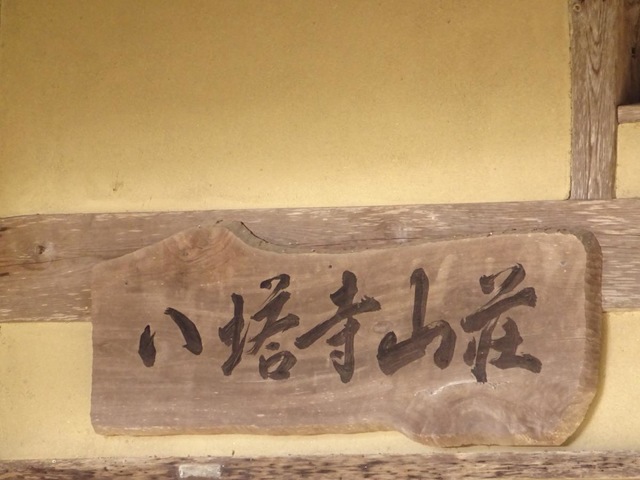 八塔寺山荘